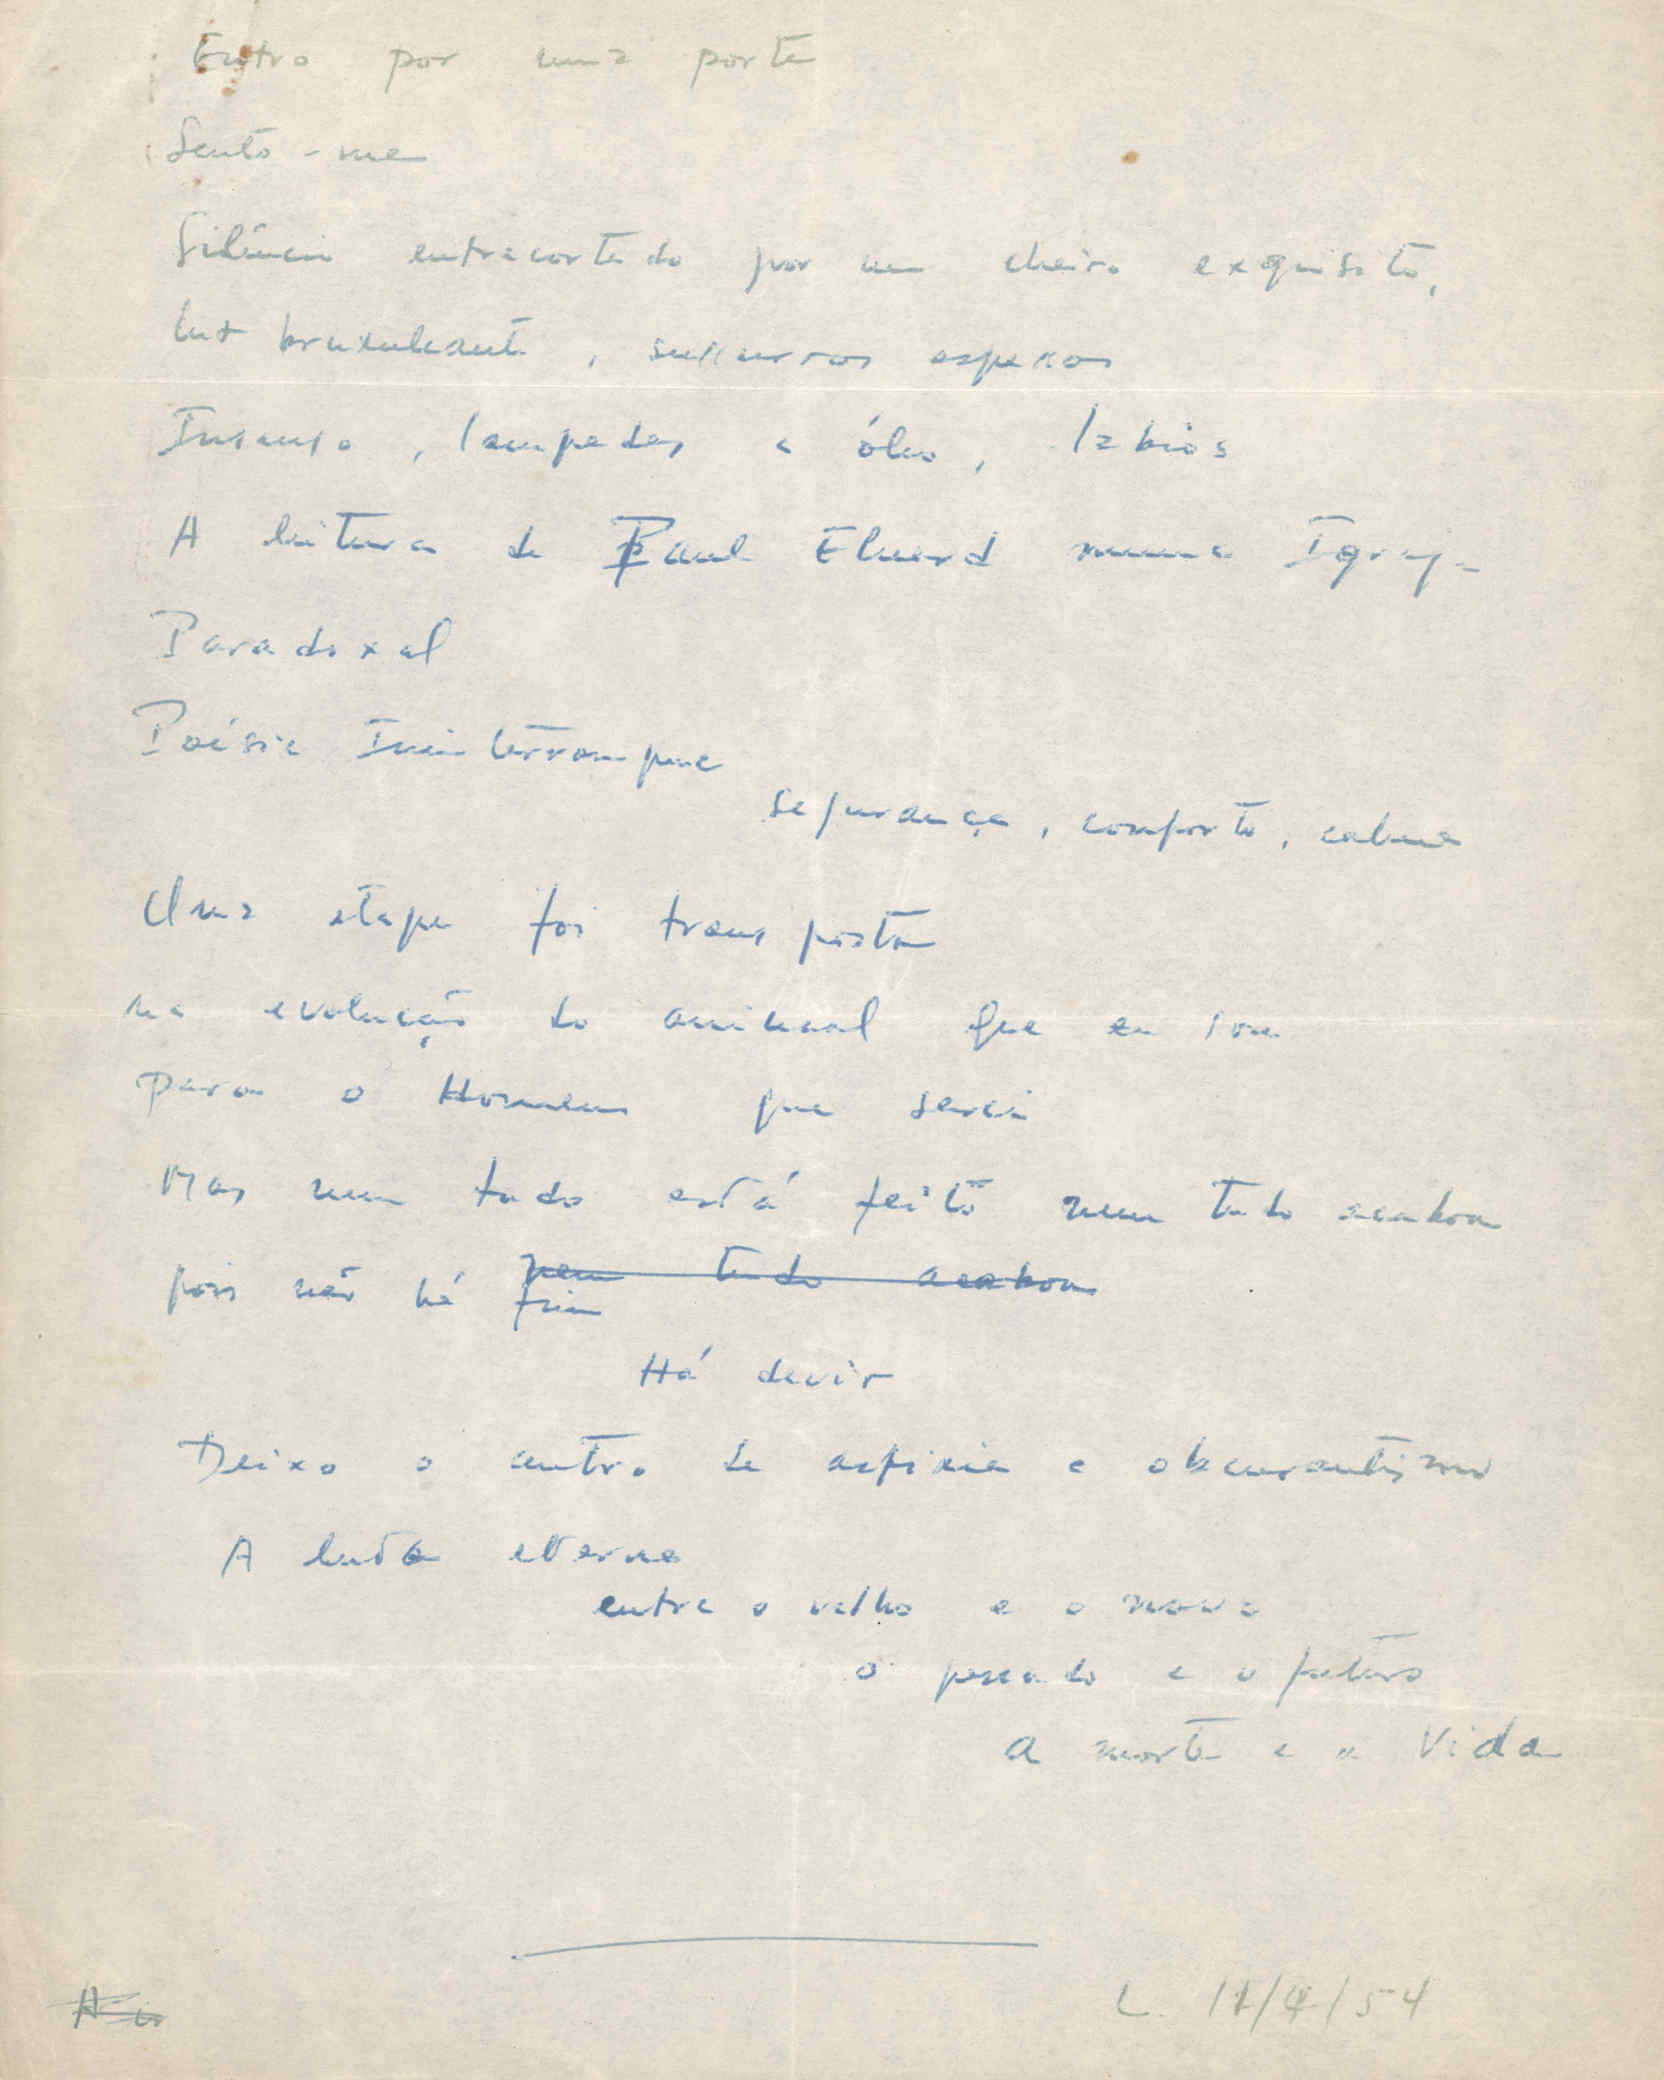 Entro por uma porta
Sento-me
Silêncio entrecortado por um cheiro exquisito,
luz bruxuleante, sussurros aspexos
Incenso, lampadas a óleo, labios
A leitura de Paul Eluard numa Igreja
Paradoxal
Poésie Ininterrompue
segurança, comforto, calma
Uma etapa foi transposta
na evolução do animal que eu sou
para o Homem que serei
Mas nem tudo está feito nem tudo acabou
pois não há nem tudo acabou
fim
Há devir
Deixo o antro de asfixia e obscurantismo
A luta eterna
entre o velho e o novo
o passado e o futuro
a morte e a Vida
L. 11/4/54